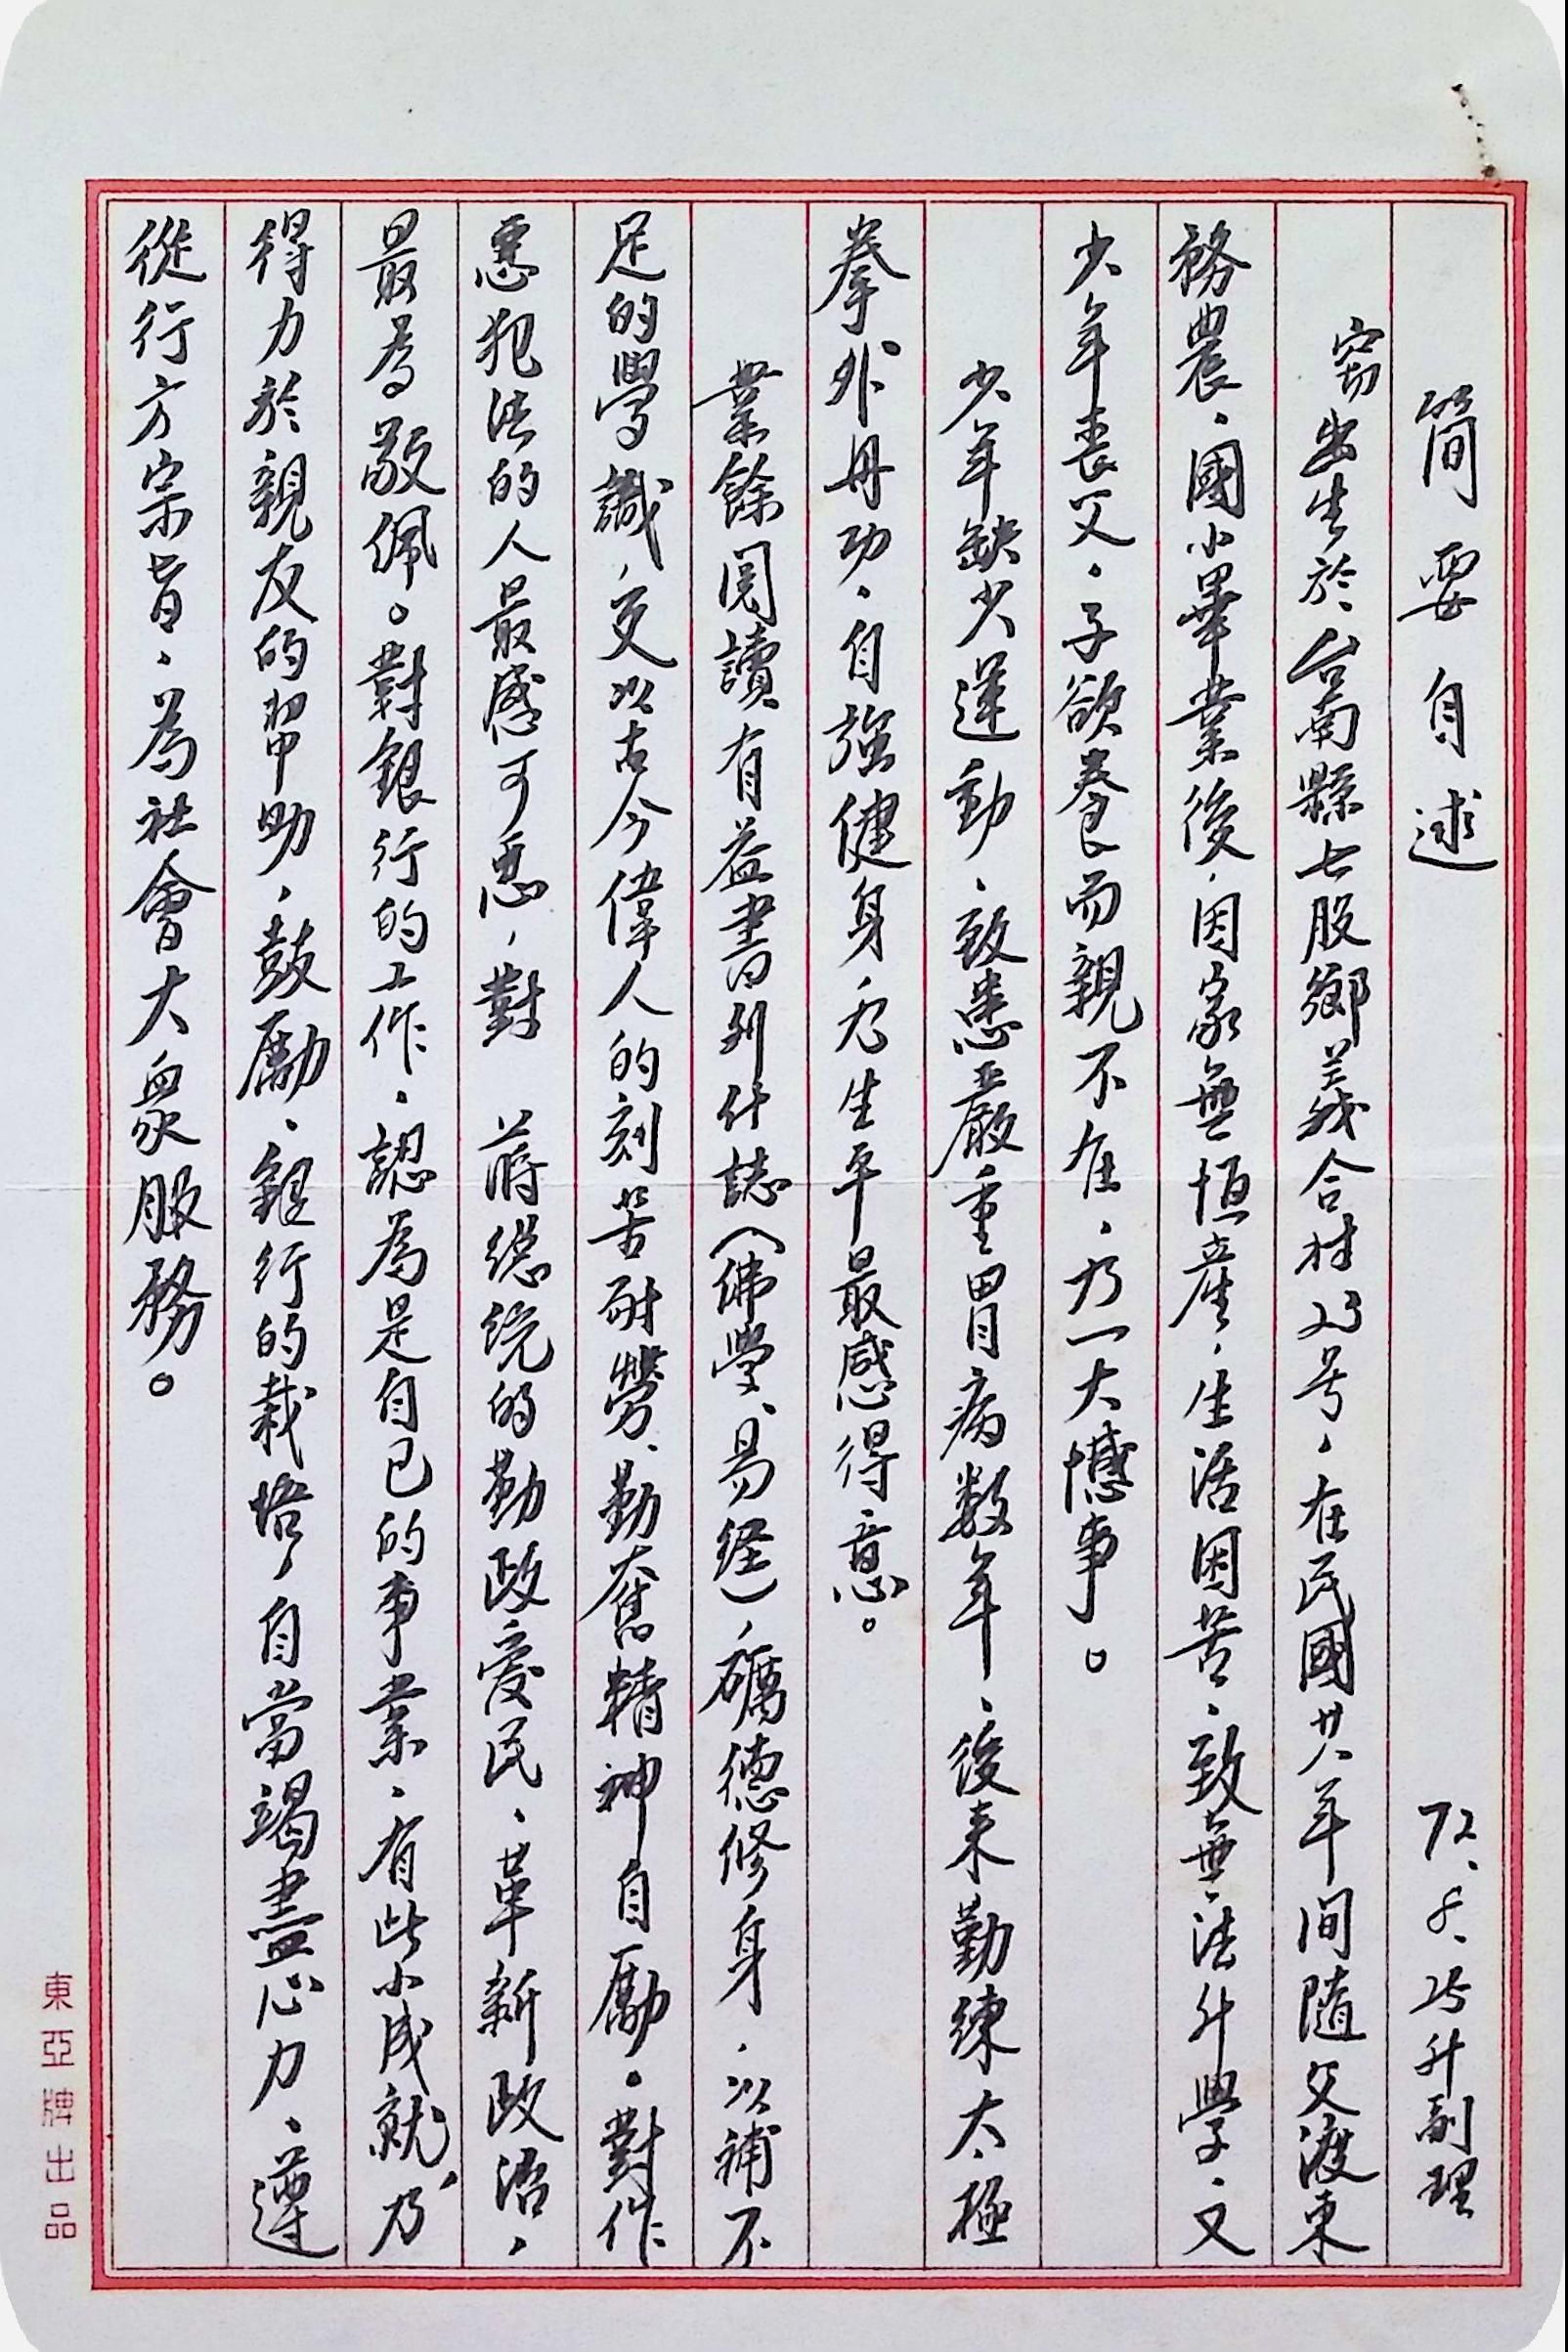 簡要自述 72.8.25升副理
竊出生於台南縣七股鄉義合村23号，在民國廿八年間隨父渡東
務農，國小畢業後，因家無恒産，生活困苦，致無法升學，又
少年喪父，子欲養而親不在，乃一大憾事。
少年缺少運動，致患嚴重胃病数年，後来勤練太極
拳外丹功，自強健身乃生平最感得意。
業餘閱讀有益書刋什誌（佛學、易経），礪德修身，以補不
足的學識，交以古今偉人的刻苦耐勞、勤奮精神自勵。對作
惡犯法的人最感可惡，對 蔣總統的勤政愛民、革新政治，
最為敬佩。對銀行的工作，認為是自己的事業，有此小成就，乃
得力於親友的幫助，鼓勵、銀行的栽培，自當竭盡心力、遵
從行方宗旨，為社會大眾服務。
東亞牌出品